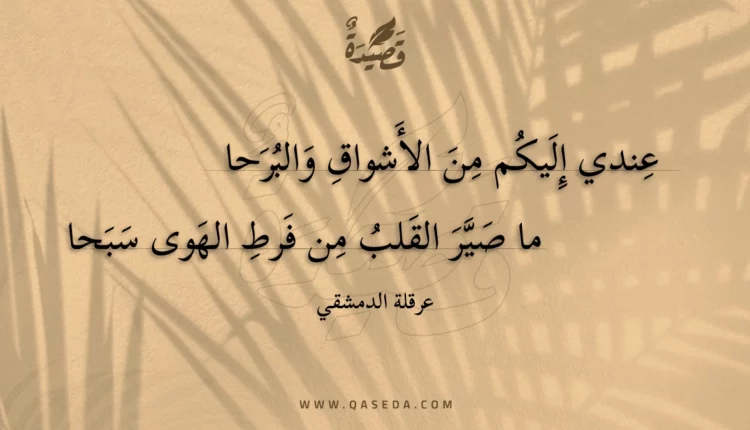 قَصِيْدَةٌ
عِندي إِلَيكُم مِنَ الأَشواقِ وَالبُرَحا
ما صَيَّرَ القَلبُ مِن فَرطِ الهَوى سَبَحا
عرقلة الدمشقي
WWW.QASEDA.COM